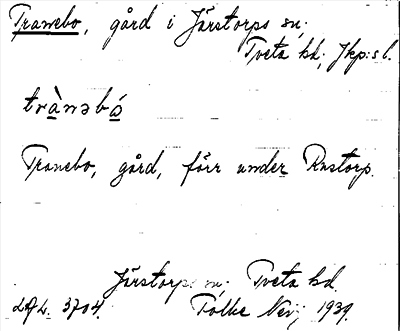 Tranebo, gård i Järstorps sn;
Tveta hd; Jkp:s l.
trànəbó
Tranebo, gård, förr under Rustorp.
Järstorps sn; Tveta hd.
3704. Folke Nerj 1939.